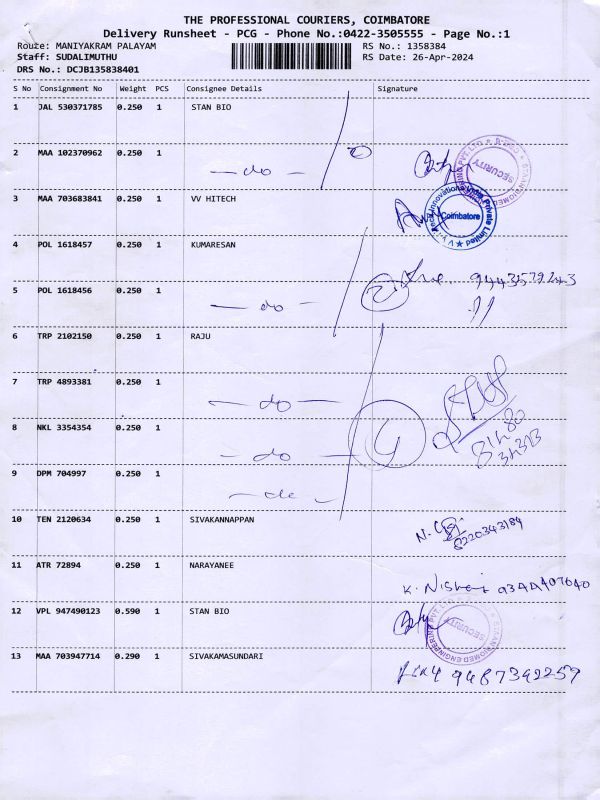 THE PROFESSIONAL COURIERS, COIMBATORE
Delivery Runsheet - PCG - Phone No.:0422-3505555 - Page No.:1
Route: MANIYAKRAM PALAYAM
Staff: SUDALIMUTHU
DRS No.: DCJB135838401
RS No.: 1358384
RS Date: 26-Apr-2024
S No Consignment No Weight PCS Consignee Details Signature
1 JAL 530371785 0.250 1 STAN BIO
2 MAA 102370962 0.250 1 - do -
SECURITY
3 MAA 703683841 0.250 1 VV HITECH
Coimbatore
4 POL 1618457 0.250 1 KUMARESAN
5 POL 1618456 0.250 1 - do - 2
6 TRP 2102150 0.250 1 RAJU
7 TRP 4893381 0.250 1 - do -
8 NKL 3354354 0.250 1 - do - 4
9 DPM 704997 0.250 1 - do -
10 TEN 2120634 0.250 1 SIVAKANNAPPAN
11 ATR 72894 0.250 1 NARAYANEE
12 VPL 947490123 0.590 1 STAN BIO
SECURITY
13 MAA 703947714 0.290 1 SIVAKAMASUNDARI